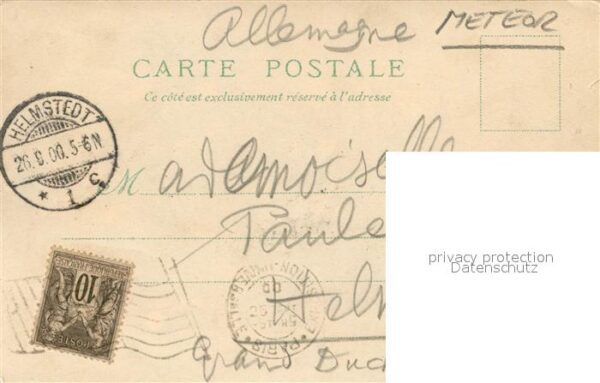 Allemagne METEOR
CARTE POSTALE
Ce côté est exclusivement réservé à l'adresse
HELMSTEDT
26.6.00.5-6N
* 1 c.
Mademoiselle
Paule
privacy protection
Datenschutz
10
POSTES
PARIS
Hel
Grand Duc